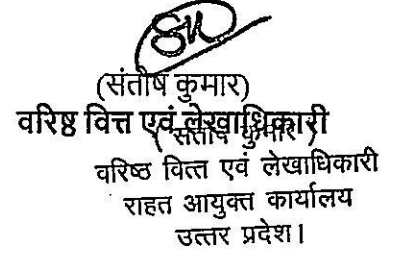 (संतोष कुमार)
वरिष्ठ वित्त एवं लेखाधिकारी
(संतोष कुमार)
वरिष्ठ वित्त एवं लेखाधिकारी
राहत आयुक्त कार्यालय
उत्तर प्रदेश।